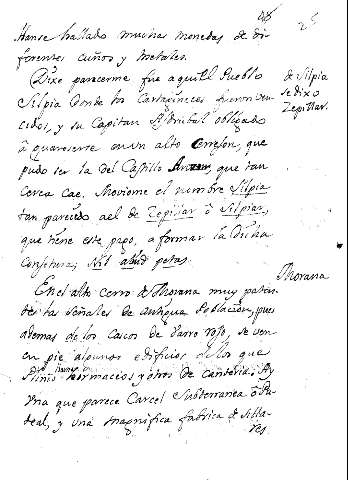 Hanse hallado muchas monedas de di-
ferentes cuños y metales.
Dixe parecerme fue aquel Pueblo
Silpia donde los Cartagineses fueron ven-
cidos, y su Capitan Asdrubal obligado
á guarecerse en un alto Cerrejon, que
pudo ser la del Castillo que tan
cerca cae. Movióme el nombre Silpia
tan parecido al de Zepillar ó Silpiar,
que tiene este pago, a formar la dicha
Conjetura;
de Silpia
se dixo
Zepillar.
En el alto cerro de Thorana muy paten-
tes las señales de antigua Poblacion, pues
ademas de los cascos de barro rojo, se ven
en pie algunos edificios de los que
Plinio llama formacios y otros de canteria; Ay
una que parece Carcel Subterranea ó
y una magnifica fabrica de silla-
res
Thorana